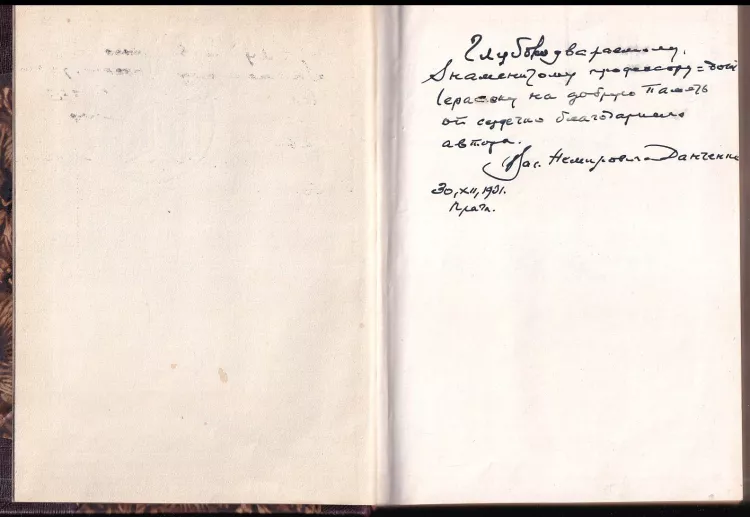 Глубокоуважаемому,
Знаменитому профессору =
на добрую память
от сердечно благодарного
автора.
Вас. Немирович-Данченко
30, XII, 1931.
Прага.